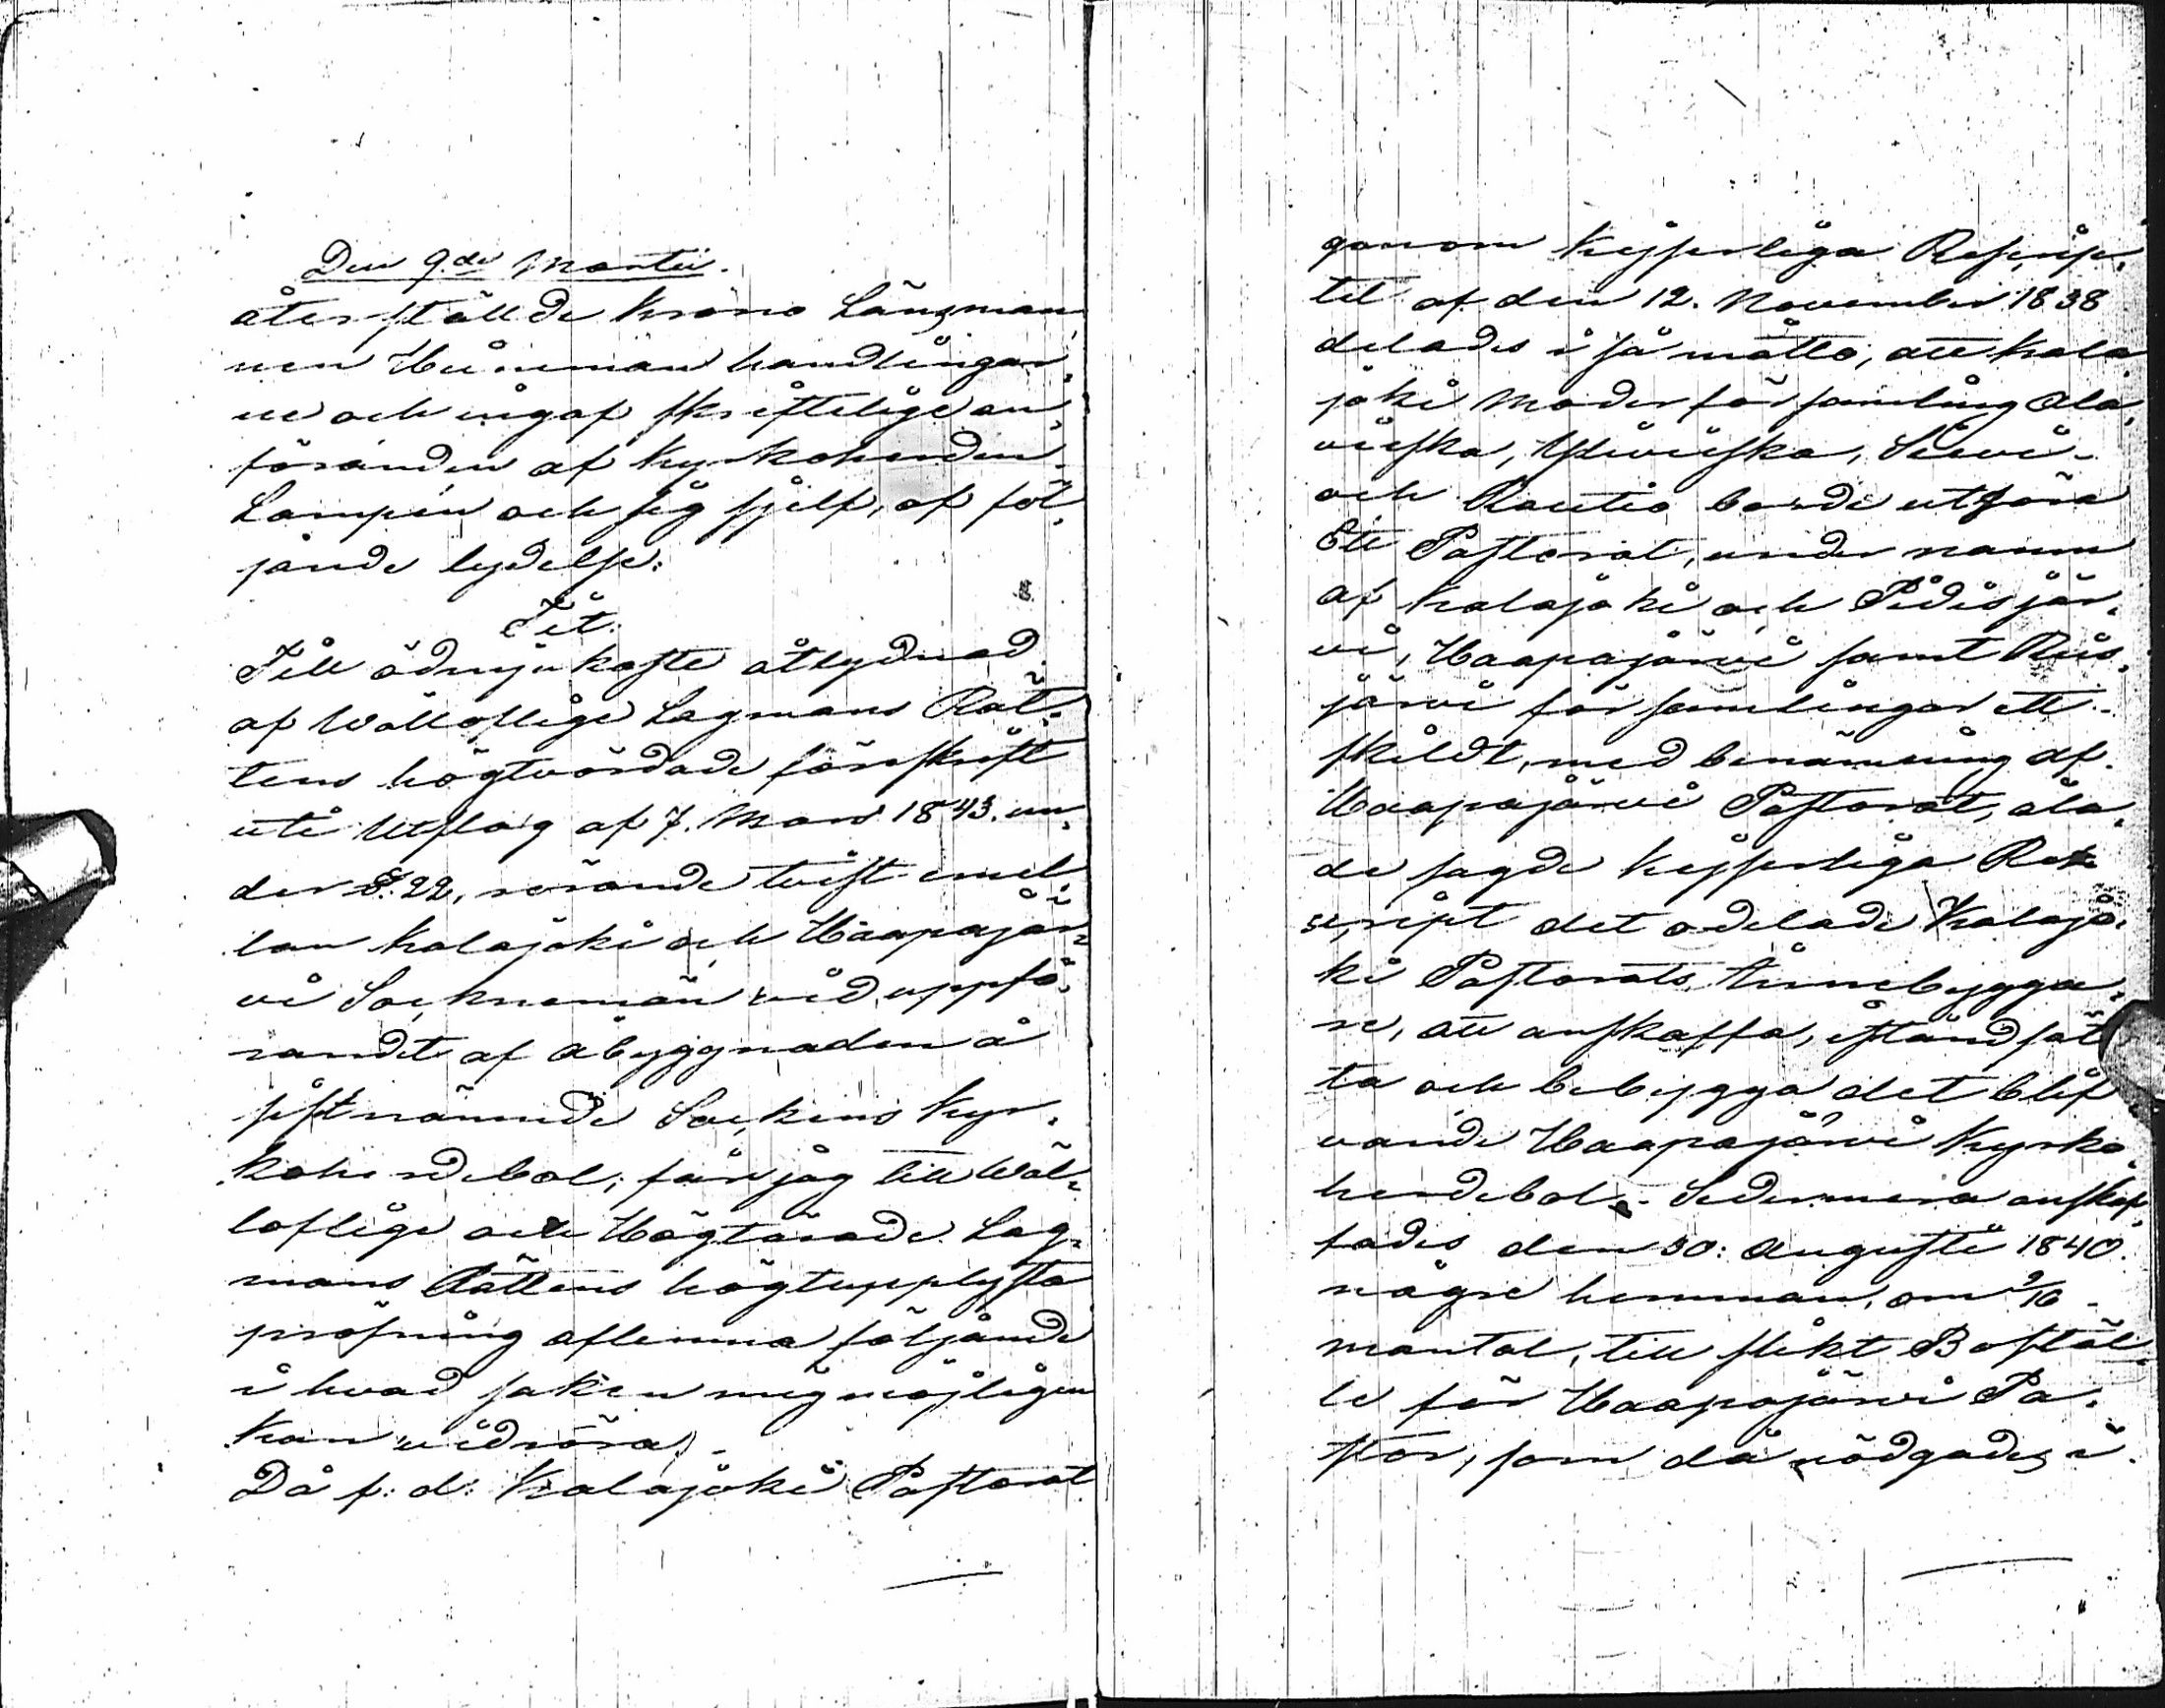 Den 9.de Martii.
återställde Krono Länsman,
nen Hünninan handlingar,
ne och ingaf skriftelige an,
föranden af Kyrkoherden
Lampén och sig sjelf, af föl,
jande lydelse:
Tit.
Till ödmjukaste åtlydnad
af Wälloflige Lagmans Rät,
tens högtvördade föreskrift
uti Utslag af 7. Mars 1843. un,
der §. 22, rörande twist emel,
lan Kalajoki och Haapajär,
vi Socknemän vid uppfö,
randet af åbyggnaden å
sistnämnde Sockens Kyr,
koherdebol; får jag till Wäl,
loflige och Högtärade Lag,
mans Rättens högtupplysta
pröfning aflemna följande
i hvad saken mig möjligen
kan vidröra).
Då f: d: Kalajoki Pastorat
genom Kejserliga Rescrip,
tet af den 12. November 1838
delades i så måtto, att Kala,
joki Moderförsamling Ala,
vieska, Ylivieska, Sievi
och Rautio borde utgöra
Ett Pastorat, under namn
af Kalajoki och Pidisjär,
vi, Haapajärvi samt Reis,
järvi församlingar ett
skildt, med benämning af
Haapajärvi Pastorat, åla,
de sagde Kejserliga Re
script det odelade Kalajo,
ki Pastorats Innebygga,
re, att anskaffa, iståndsät
ta och bebygga det blif,
vande Haapajärvi Kyrko,
herdebol. Sedermera anskaf,
fades den 30: Augusti 1840.
någre hemman, om 9/16
mantal, till slikt Boställ,
le för Haapajärvi Pa,
stor, som då nödgades i